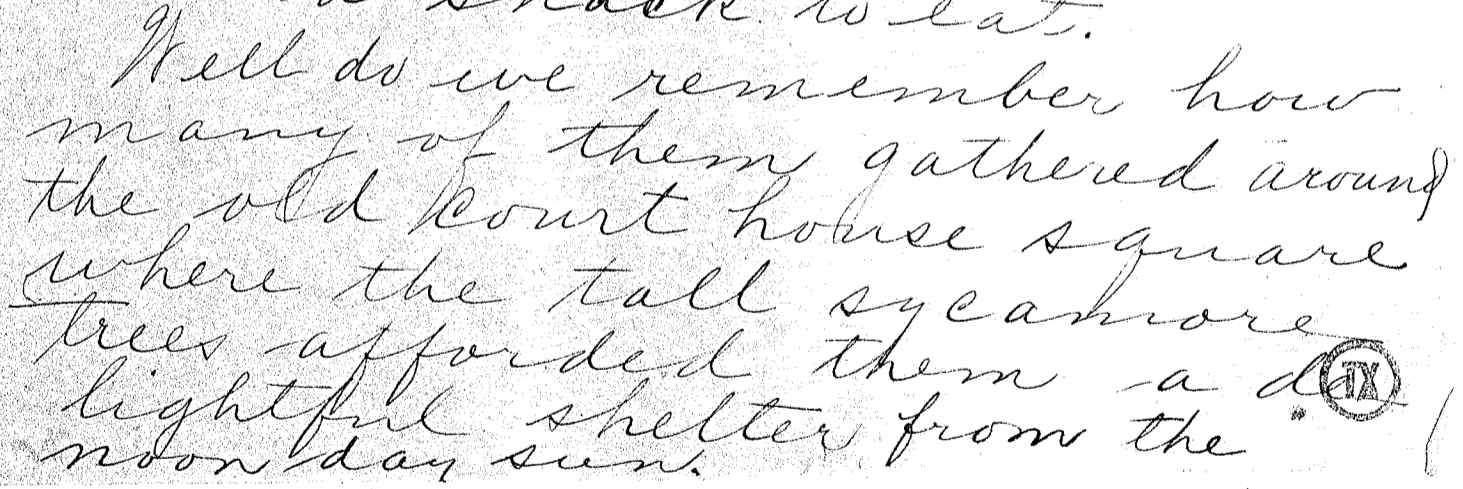 a snack to eat.
Well do we remember how
many of them gathered around
the old court house square
where the tall sycamore
trees afforded them a de
lightful shelter from the
noon day sun.
TX